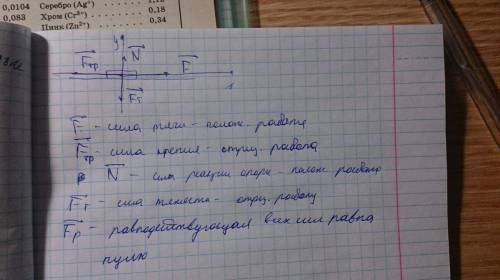 0,0104 Серебро (Ag⁺)
0,083 Хром (Cr³⁺) 0,18
Цинк (Zn²⁺) 0,34
y N
Fтр F
x
Fт
F – сила тяги – полож. работа
Fтр – сила трения – отриц. работа
N – сила реакции опоры – полож. работа
Fт – сила тяжести – отриц. работа
Fр – равнодействующая всех сил равна
нулю